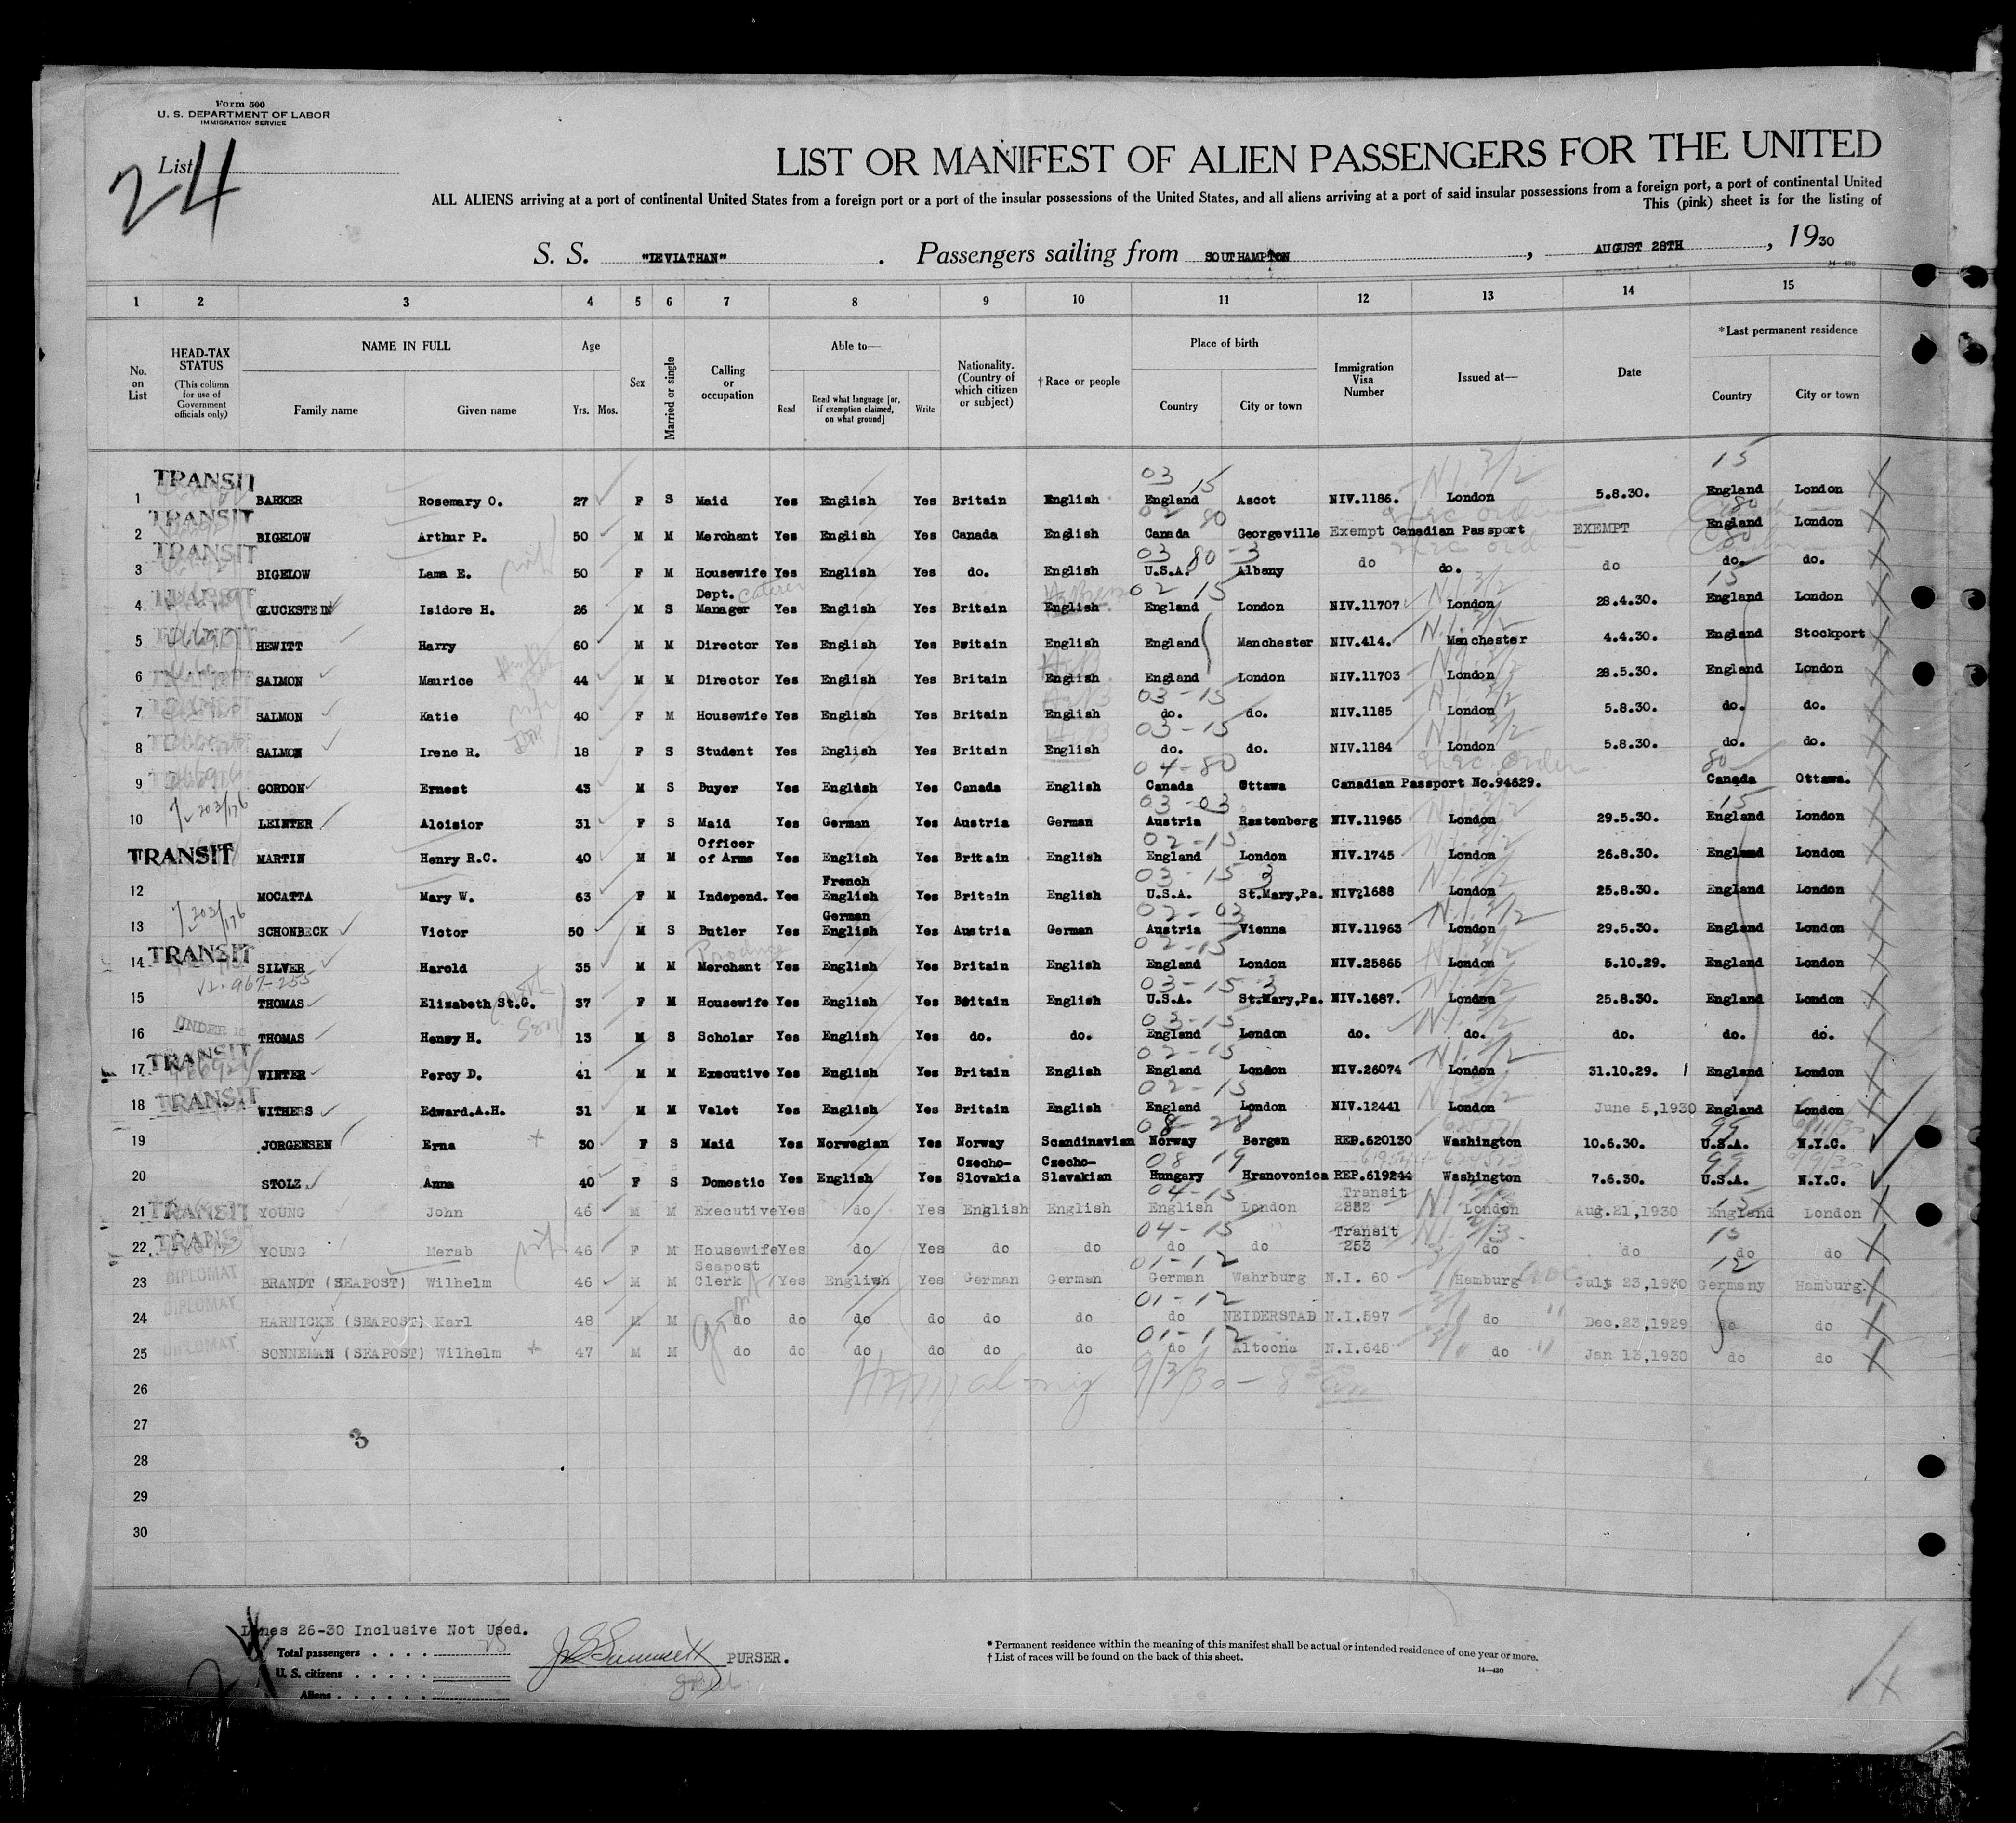 Form 500
U. S. DEPARTMENT OF LABOR
IMMIGRATION SERVICE
List 24
LIST OR MANIFEST OF ALIEN PASSENGERS FOR THE UNITED
ALL ALIENS arriving at a port of continental United States from a foreign port or a port of the insular possessions of the United States, and all aliens arriving at a port of said insular possessions from a foreign port, a port of continental United
This (pink) sheet is for the listing of
S. S. "LEVIATHAN" . Passengers sailing from SOUTHAMPTON , AUGUST 28TH , 1930
14-480
1 2 3 4 5 6 7 8 9 10 11 12 13 14 15
No. on List
HEAD-TAX STATUS (This column for use of Government officials only)
NAME IN FULL Family name Given name
Age Yrs. Mos.
Sex
Married or single
Calling or occupation
Able to— Read Read what language [or, if exemption claimed, on what ground] Write
Nationality. (Country of which citizen or subject)
†Race or people
Place of birth Country City or town
Immigration Visa Number
Issued at—
Date
*Last permanent residence Country City or town
TRANSIT 03 15 N.I. 3/2 15
1 BARKER Rosemary O. 27 F S Maid Yes English Yes Britain English England Ascot NIV.1186. London 5.8.30. England London
TRANSIT 80
2 BIGELOW Arthur P. 50 M M Merchant Yes English Yes Canada English Canada Georgeville Exempt Canadian Passport EXEMPT England London
TRANSIT 03 80 -3
3 BIGELOW Lama E. 50 F M Housewife Yes English Yes do. English U.S.A. Albany do do. do do. do.
02 15 N.I. 3/2 15
4 GLUCKSTEIN Isidore H. 26 M S Dept. Manager Yes English Yes Britain English England London NIV.11707 London 28.4.30. England London
5 HEWITT Harry 60 M M Director Yes English Yes Britain English England Manchester NIV.414. Manchester 4.4.30. England Stockport
6 SALMON Maurice 44 M M Director Yes English Yes Britain English England London NIV.11703 London 28.5.30. England London
03-15 N.I. 3/2
7 SALMON Katie 40 F M Housewife Yes English Yes Britain English do. do. NIV.1185 London 5.8.30. do. do.
03-15 N.I. 3/2
8 SALMON Irene R. 18 F S Student Yes English Yes Britain English do. do. NIV.1184 London 5.8.30. do. do.
04-80 80
9 GORDON Ernest 43 M S Buyer Yes English Yes Canada English Canada Ottawa Canadian Passport No.94629. Canada Ottawa.
203/176 03-03 15
10 LEINTER Aloisior 31 F S Maid Yes German Yes Austria German Austria Rastenberg NIV.11965 London 29.5.30. England London
02-15
TRANSIT MARTIN Henry R.C. 40 M M Officer of Arms Yes English Yes Britain English England London NIV.1745 London 26.8.30. England London
03-15 3
12 MOCATTA Mary W. 63 F M Independ. Yes French English Yes Britain English U.S.A. St.Mary,Pa. NIV.1688 London 25.8.30. England London
203/176 02-03 N.I. 3/2
13 SCHONBECK Victor 50 M S Butler Yes German English Yes Austria German Austria Vienna NIV.11963 London 29.5.30. England London
TRANSIT Produce 02-15
14 SILVER Harold 35 M M Merchant Yes English Yes Britain English England London NIV.25865 London 5.10.29. England London
03-15 3
15 THOMAS Elizabeth St.G. 37 F M Housewife Yes English Yes Britain English U.S.A. St.Mary,Pa. NIV.1687. London 25.8.30. England London
UNDER 16 son 03-15
16 THOMAS Henry H. 13 M S Scholar Yes English Yes do. do. England London do. do. do. do. do.
TRANSIT 02-15 N.I. 3/2
17 WINTER Percy D. 41 M M Executive Yes English Yes Britain English England London NIV.26074 London 31.10.29. England London
TRANSIT 02-15
18 WITHERS Edward.A.H. 31 M M Valet Yes English Yes Britain English England London NIV.12441 London June 5,1930 England London
08-28 99
19 JORGENSEN Erna 30 F S Maid Yes Norwegian Yes Norway Scandinavian Norway Bergen REP.620130 Washington 10.6.30. U.S.A. N.Y.C.
08 19 99
20 STOLZ Anna 40 F S Domestic Yes English Yes Czecho-Slovakia Czecho-Slavakian Hungary Hranovonica REP.619244 Washington 7.6.30. U.S.A. N.Y.C.
04-15 15
21 TRANSIT YOUNG John 46 M M Executive Yes do Yes English English English London Transit 2252 London Aug.21,1930 England London
04-15 15
22 TRANSIT YOUNG Merab wife 46 F M Housewife Yes do Yes do do do do Transit 253 do do do do
DIPLOMAT 01-12 12
23 BRANDT (SEAPOST) Wilhelm 46 M M Seapost Clerk Yes English Yes German German German Wahrburg N.I. 60 Hamburg July 23,1930 Germany Hamburg
DIPLOMAT 01-12
24 HARNICKE (SEAPOST) Karl 48 M M do do do do do do do NEIDERSTAD N.I.597 do Dec.23,1929 do do
DIPLOMAT 01-12
25 SONNEMAN (SEAPOST) Wilhelm 47 M M do do do do do do do Altoona N.I.645 do Jan 13,1930 do do
26
27
3
28
29
30
Lines 26-30 Inclusive Not Used.
Total passengers 25
U. S. citizens
Aliens
PURSER.
* Permanent residence within the meaning of this manifest shall be actual or intended residence of one year or more.
† List of races will be found on the back of this sheet.
14-480